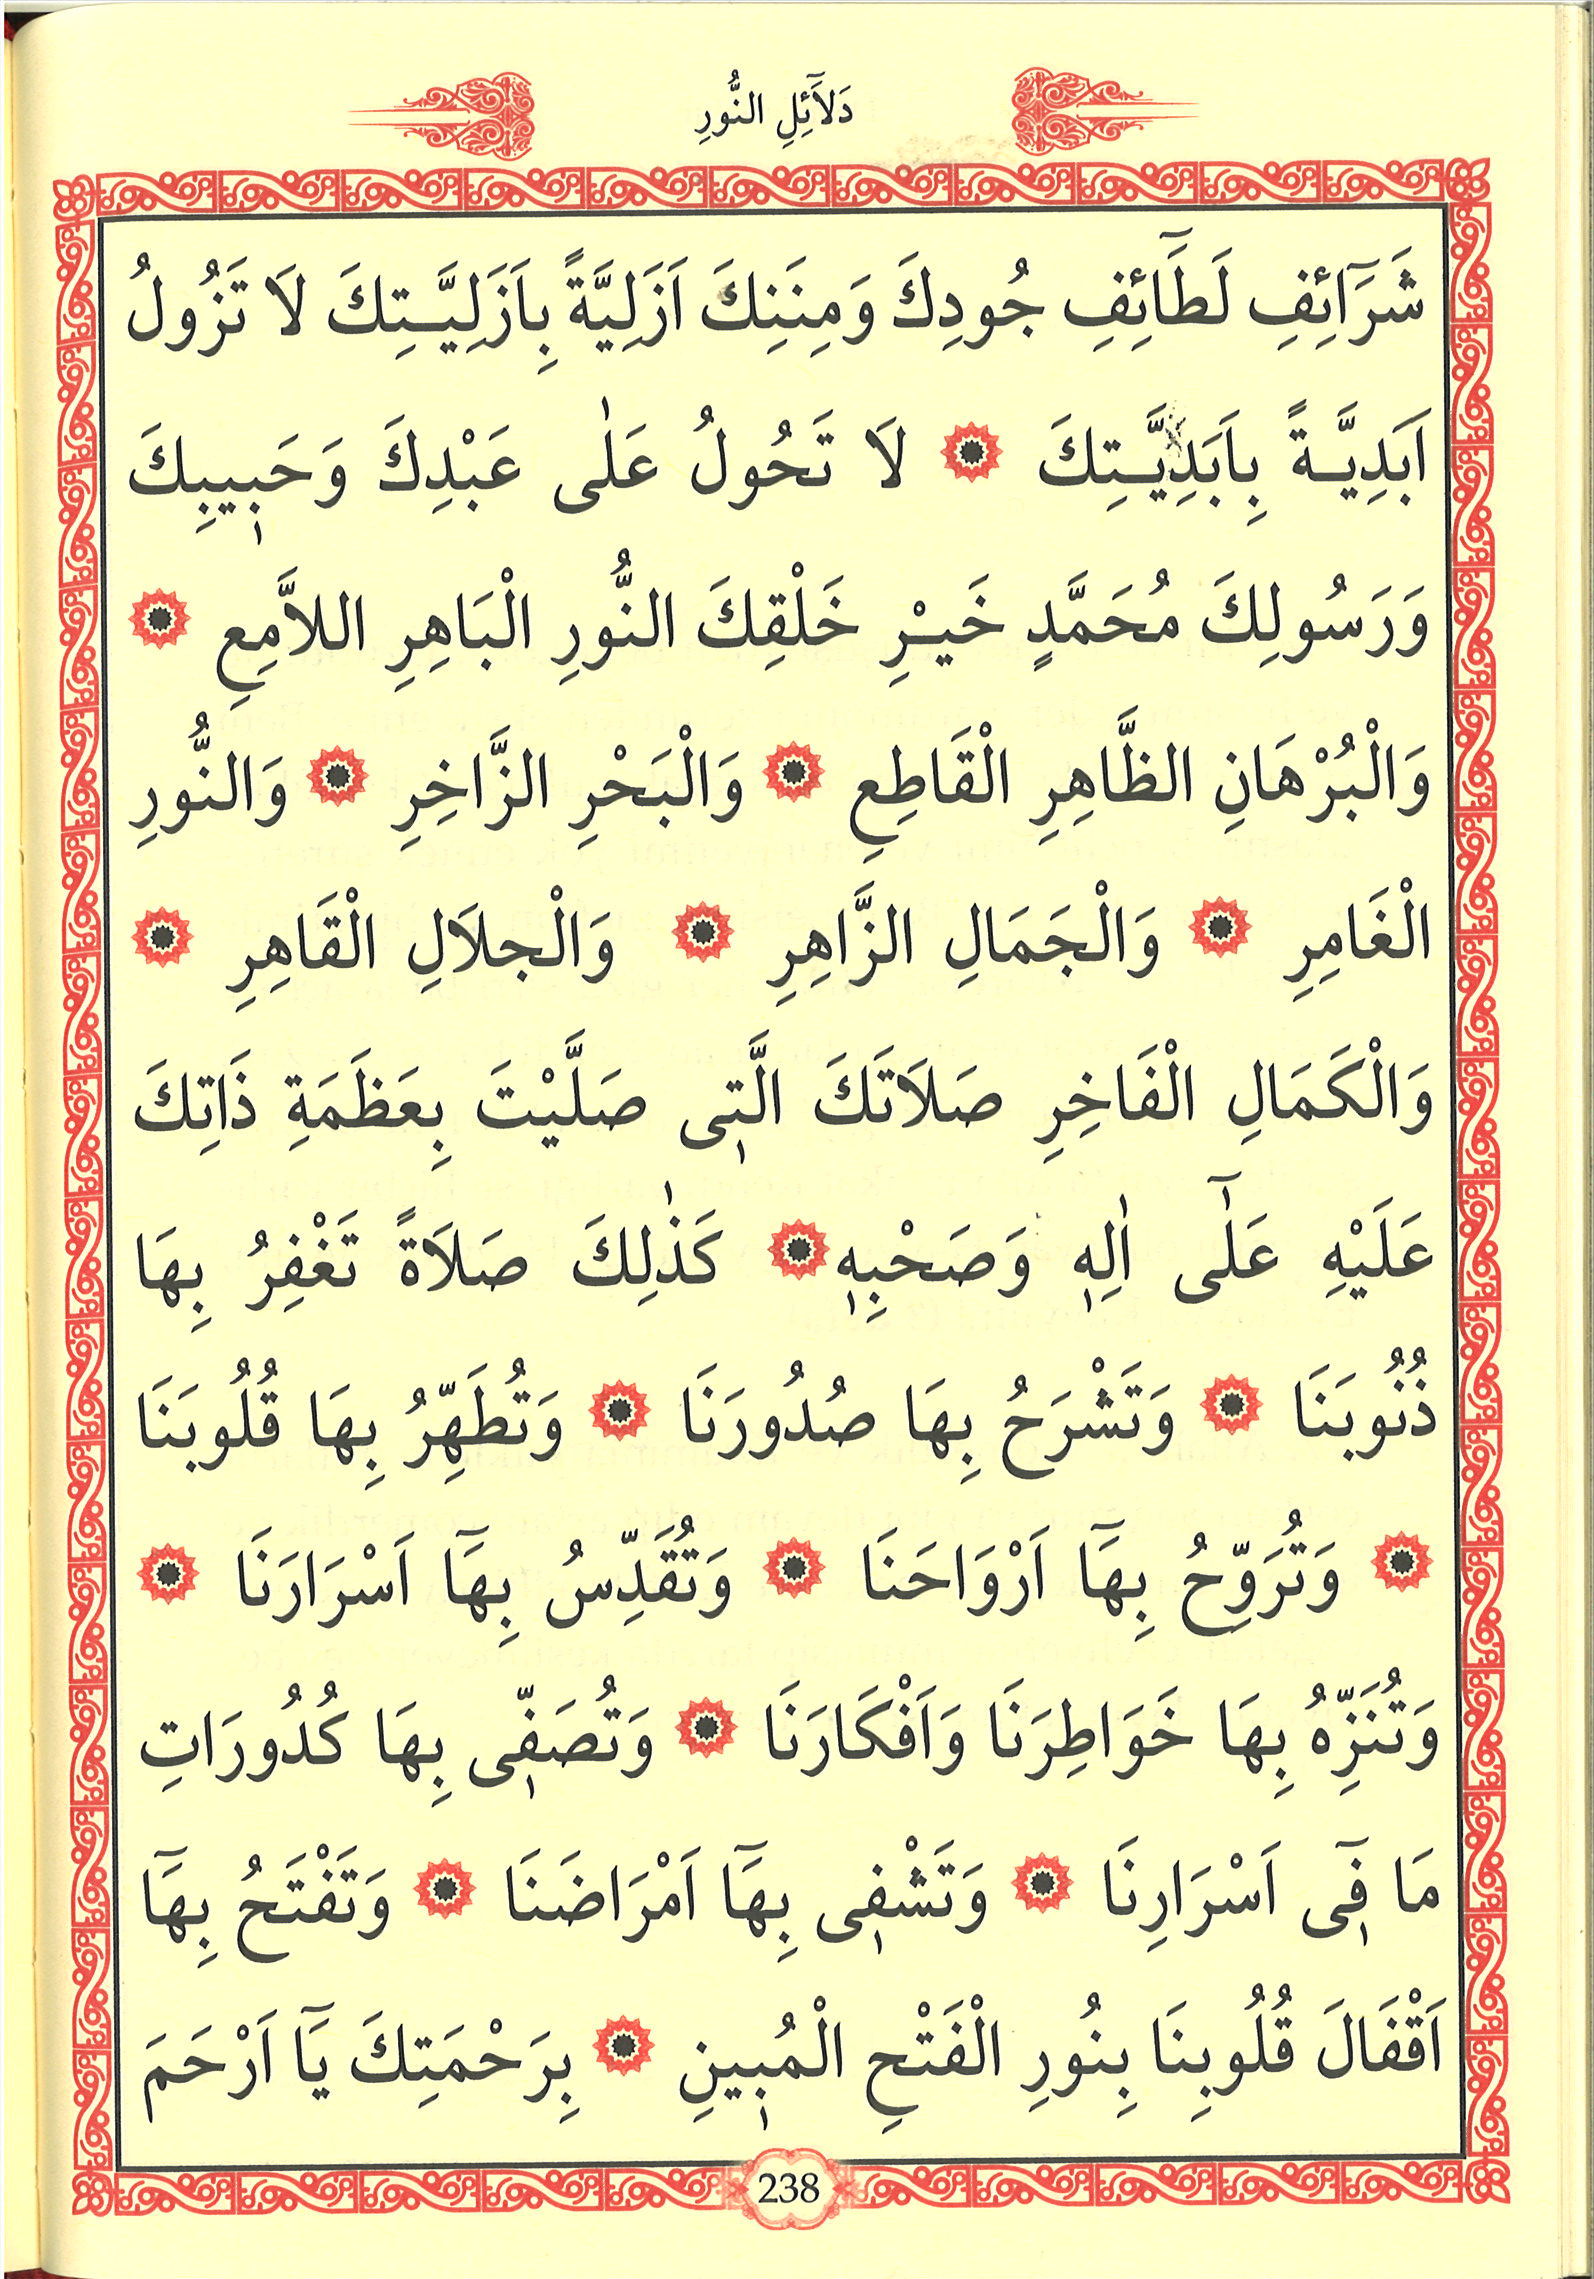 دَلَٓائِلِ النُّورِ
شَرَٓائِفِ لَطَٓائِفِ جُودِكَ وَمِنَنِكَ اَزَلِيَّةً بِاَزَلِيَّـتِكَ لَا تَزُولُ
اَبَدِيَّـةً بِاَبَدِيَّـتِكَ ۞ لَا تَحُولُ عَلٰى عَبْدِكَ وَحَبٖيبِكَ
وَرَسُولِكَ مُحَمَّدٍ خَيْـرِ خَلْقِكَ النُّورِ الْبَاهِرِ اللاَّمِعِ ۞
وَالْبُرْهَانِ الظَّاهِرِ الْقَاطِعِ ۞ وَالْبَحْرِ الزَّاخِرِ ۞ وَالنُّورِ
الْغَامِرِ ۞ وَالْجَمَالِ الزَّاهِرِ ۞ وَالْجلَالِ الْقَاهِرِ ۞
وَالْكَمَالِ الْفَاخِرِ صَلَاتَكَ الَّتٖى صَلَّيْتَ بِعَظَمَةِ ذَاتِكَ
عَلَيْهِ عَلٰٓى اٰلِهٖ وَصَحْبِهٖ ۞ كَذٰلِكَ صَلَاةً تَغْفِرُ بِهَا
ذُنُوبَنَا ۞ وَتَشْرَحُ بِهَا صُدُورَنَا ۞ وَتُطَهِّرُ بِهَا قُلُوبَنَا
۞ وَتُرَوِّحُ بِهَٓا اَرْوَاحَنَا ۞ وَتُقَدِّسُ بِهَٓا اَسْرَارَنَا ۞
وَتُنَزِّهُ بِهَا خَوَاطِرَنَا وَاَفْكَارَنَا ۞ وَتُصَفّٖى بِهَا كُدُورَاتِ
مَا فٖٓى اَسْرَارِنَا ۞ وَتَشْفٖى بِهَٓا اَمْرَاضَنَا ۞ وَتَفْتَحُ بِهَٓا
اَقْفَالَ قُلُوبِنَا بِنُورِ الْفَتْحِ الْمُبٖينِ ۞ بِرَحْمَتِكَ يَٓا اَرْحَمَ
238